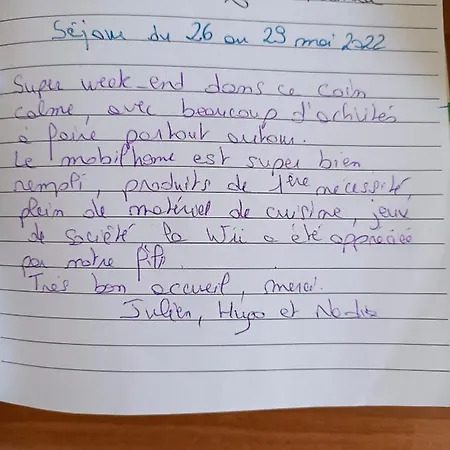 Séjour du 26 au 29 mai 2022
Super week-end dans ce coin
calme, avec beaucoup d'activités
à faire partout autour.
Le mobilhome est super bien
rempli, produits de 1ère nécessité,
plein de matériel de cuisine, jeux
de société la Wii a été appréciée
par notre fils.
Très bon accueil, merci.
Julien, Hugo et Nadia